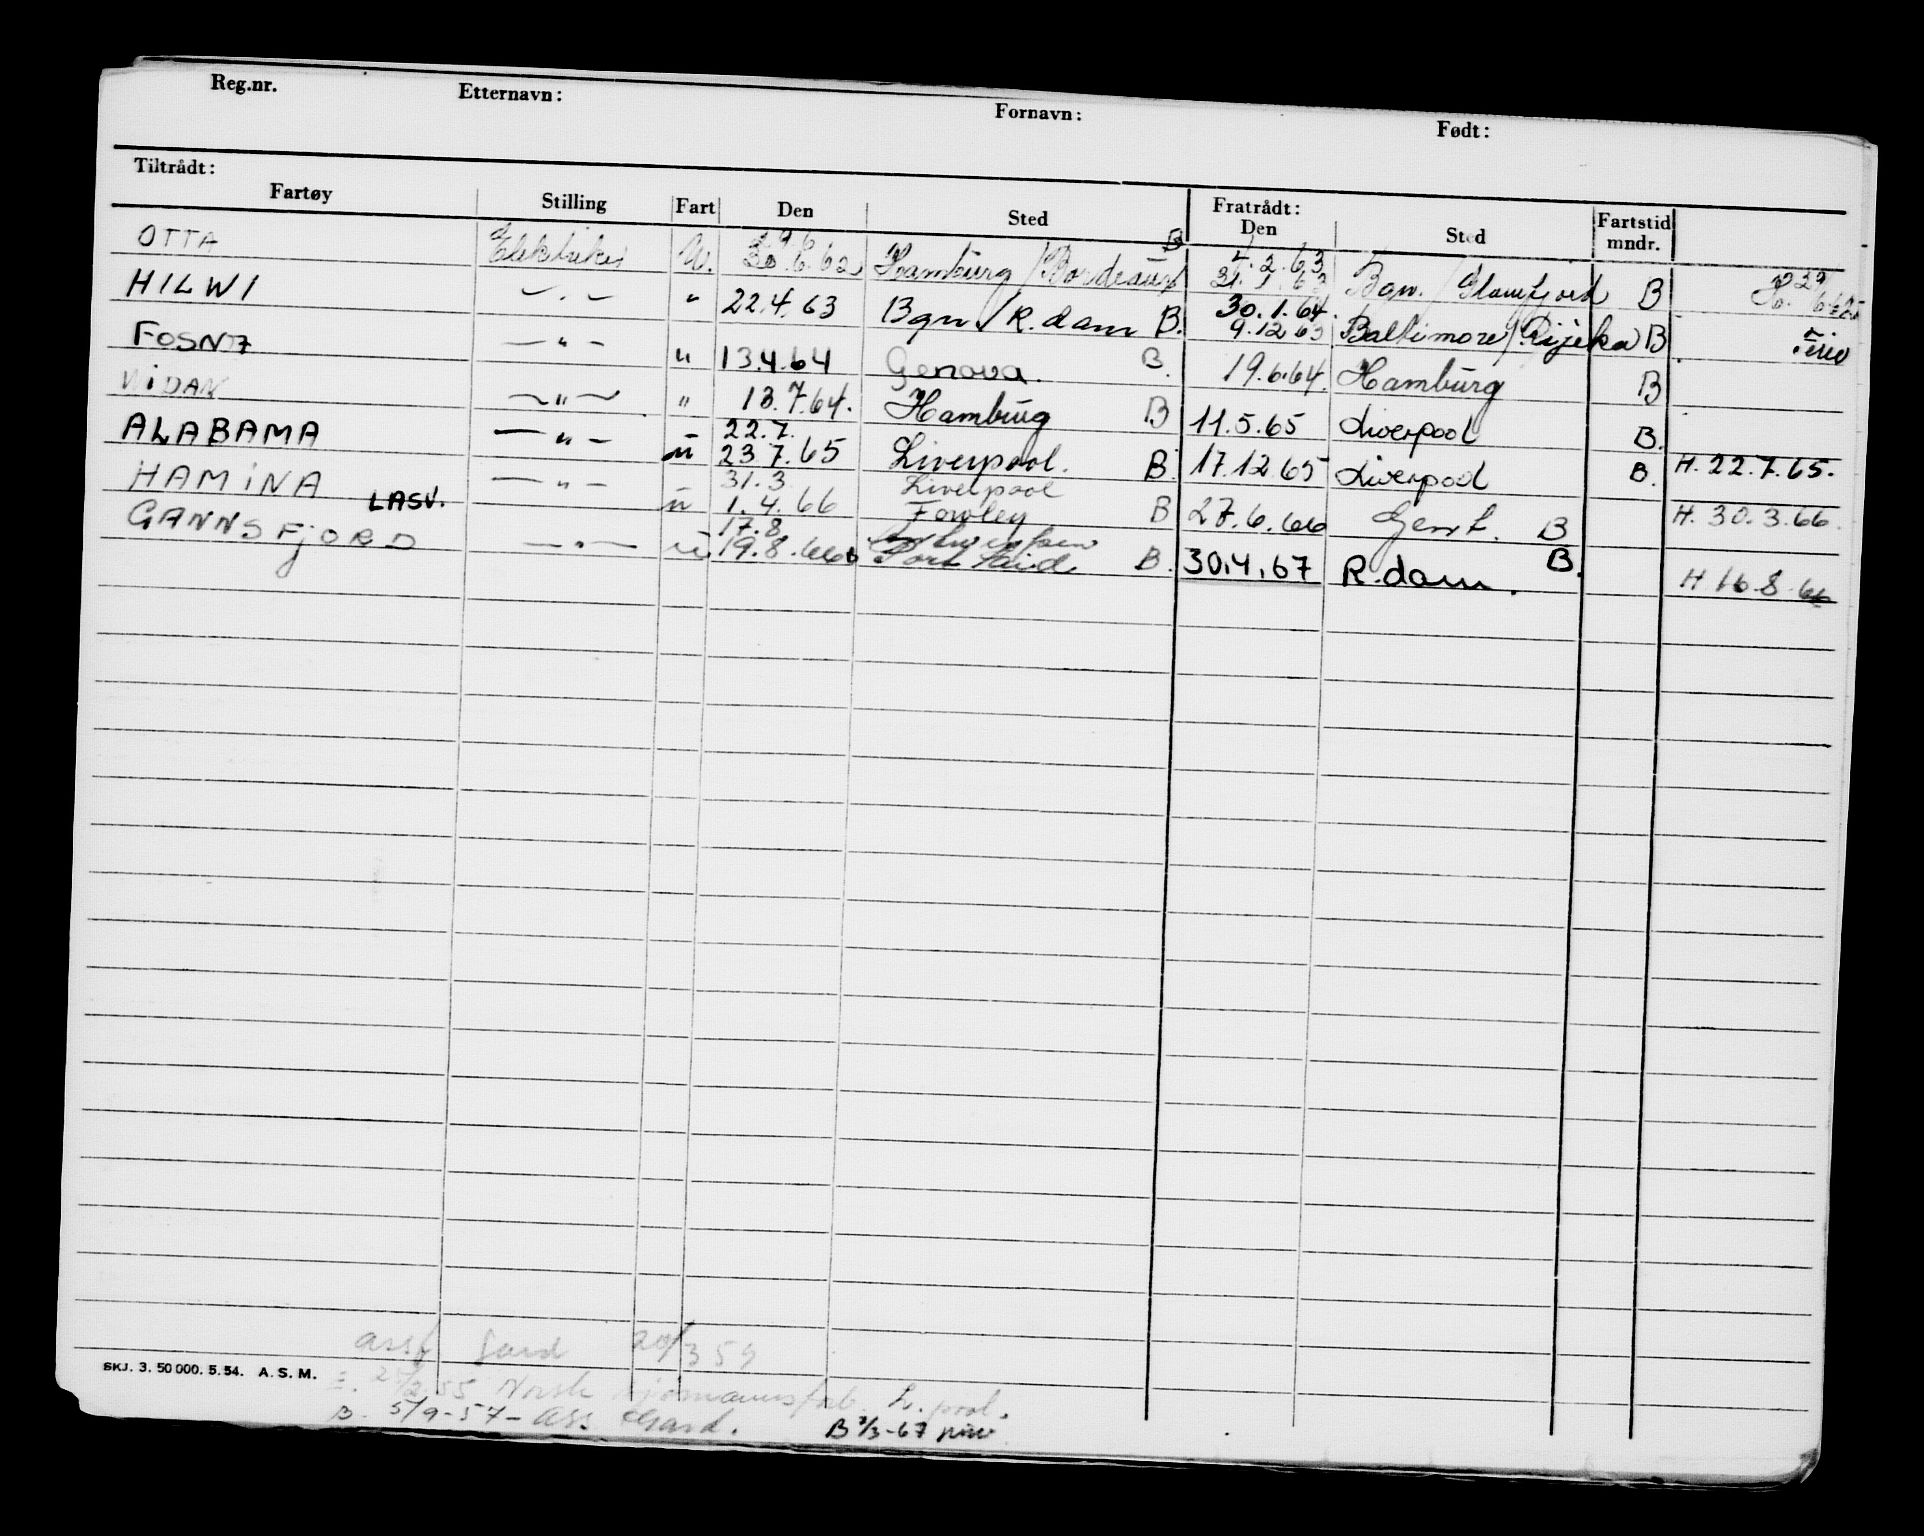 Reg.nr. Etternavn: Fornavn: Født:
Tiltrådt: Fratrådt:
Fartøy Stilling Fart Den Sted Den Sted Fartstid mndr.
OTTA Elektriker U. 30.6.62 Hamburg / Bordeaux B 1.2.63 31.1.63 Bgn. / Glomfjord B
HILWI — " — " 22.4.63 Bgn / R.dam B. 30.1.64 9.12.63 Baltimore / Rijeka B
FOSNA — " — " 13.4.64 Genova. B. 19.6.64. Hamburg B
NIDAN — " — " 13.7.64. Hamburg B 11.5.65 Liverpool B.
ALABAMA — " — u 22.7. 23.7.65 Liverpool. B. 17.12.65 Liverpool B. H. 22.7.65.
HAMINA LASV. — " — u 31.3 1.4.66 Liverpool Fowley B 27.6.66 Gent. B H. 30.3.66.
GANNSFJORD — " — u 17.8 19.8.66 Antwerpen Port Said B. 30.4.67 R.dam. B. H 16.8.66
ass Gard 20/3 59
SKJ. 3. 50 000. 5. 54. A. S. M.
E. 25/2 55 Norsk sjømannsforb. L.pool.
B. 5/9-57- Ass Gard. B 7/3-67 priv